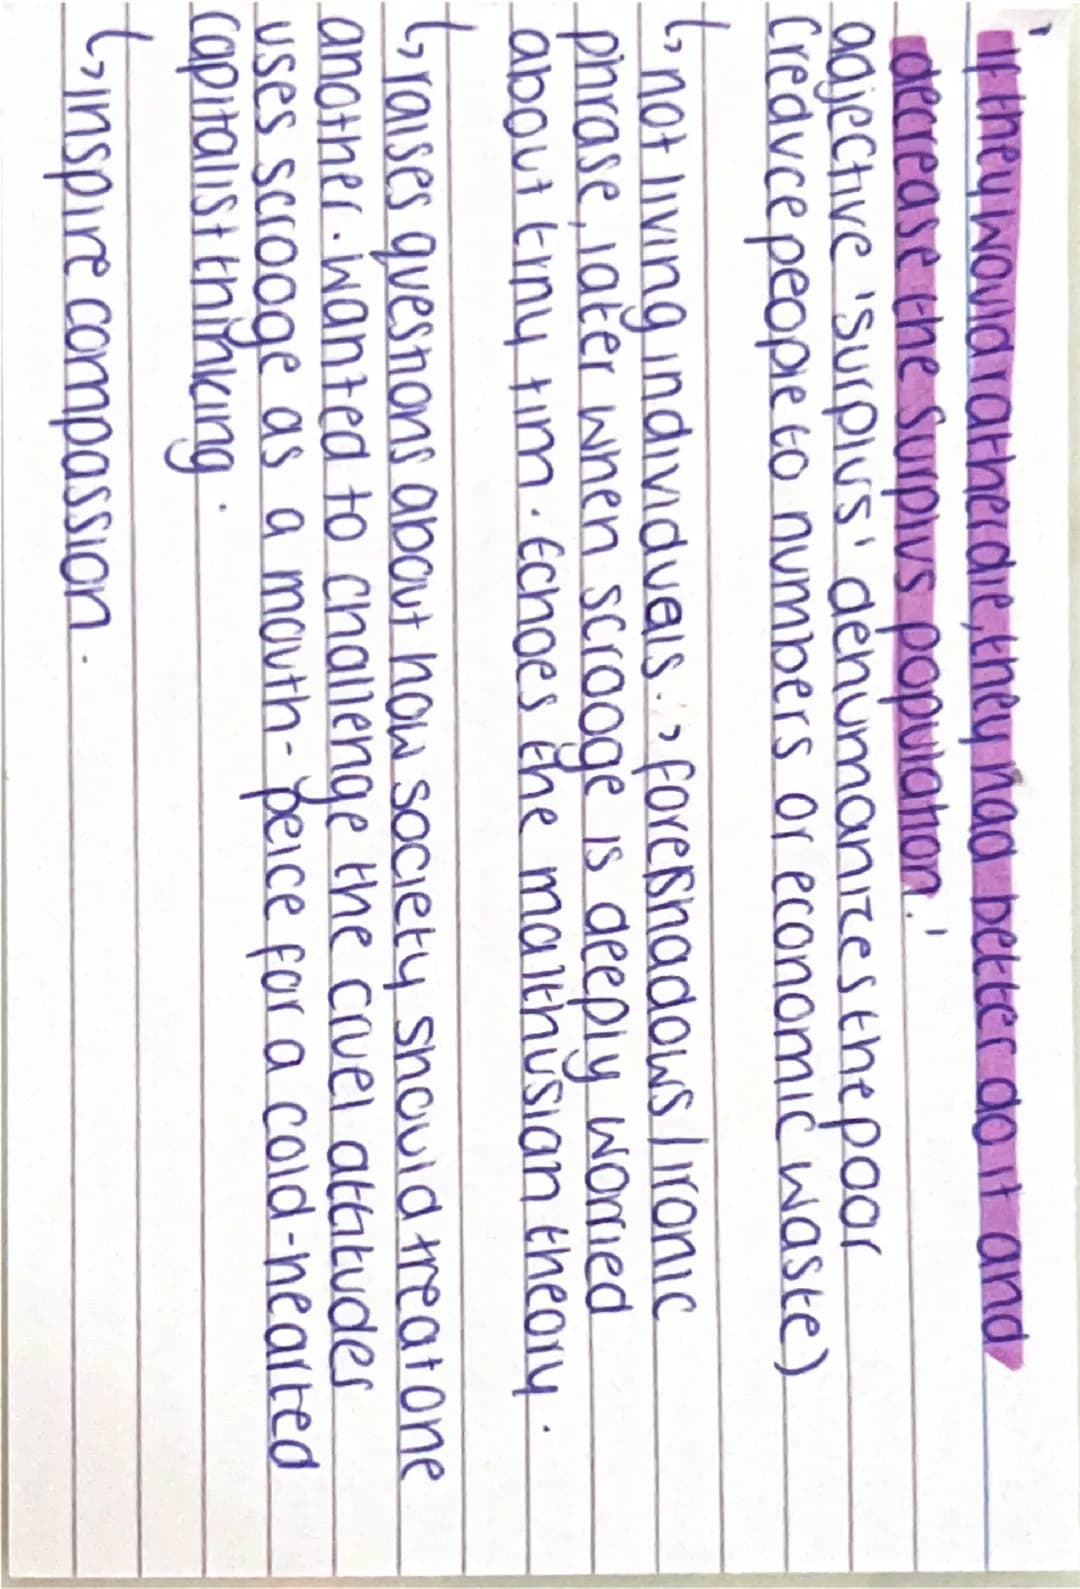 'If they would rather die, they had better do it and
decrease the surplus population.'
adjective 'surplus' dehumanizes the poor
(reduce people to numbers or economic waste)
↳ not living individuals. → foreshadows / ironic
phrase, later when scrooge is deeply worried
about tiny tim. Echoes the malthusian theory.
↳ raises questions about how society should treat one
another. wanted to challenge the cruel attitudes
uses scrooge as a mouth-peice for a cold-hearted
capitalist thinking.
↳ inspire compassion.